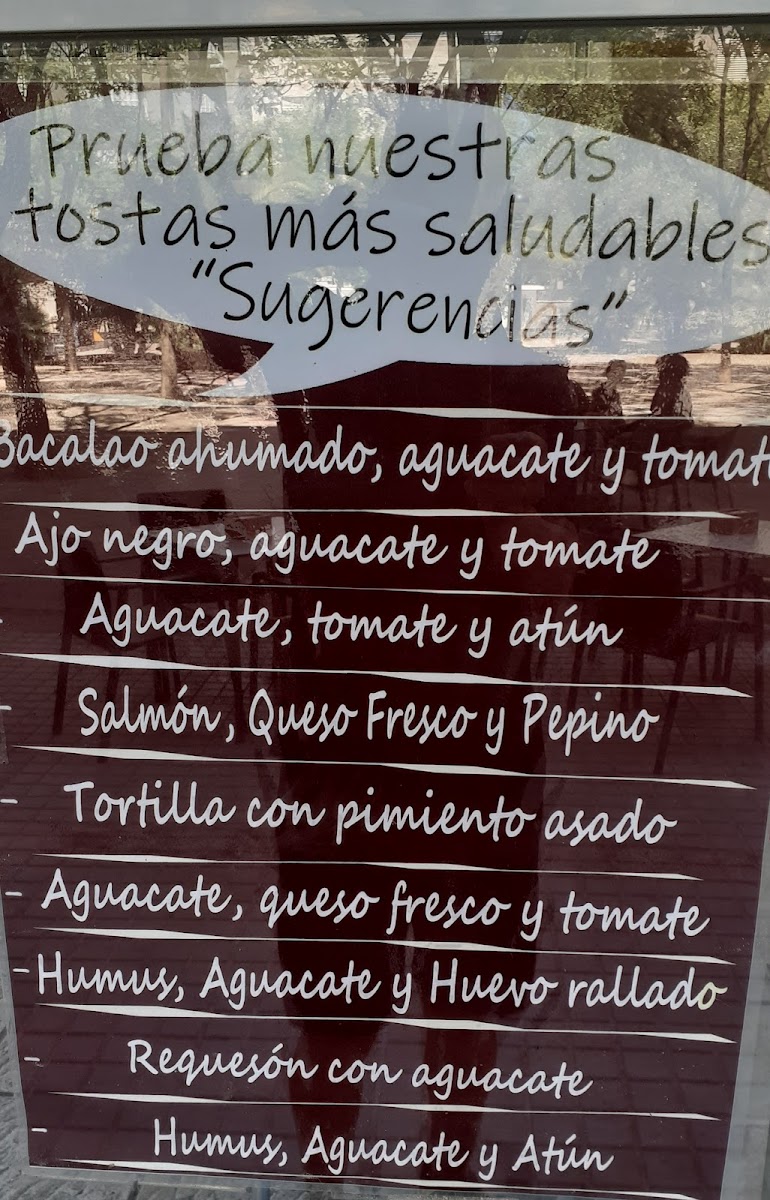 Prueba nuestras
tostas más saludables
"Sugerencias"
Bacalao ahumado, aguacate y tomate
Ajo negro, aguacate y tomate
Aguacate, tomate y atún
- Salmón, Queso Fresco y Pepino
- Tortilla con pimiento asado
- Aguacate, queso fresco y tomate
- Humus, Aguacate y Huevo rallado
- Requesón con aguacate
- Humus, Aguacate y Atún